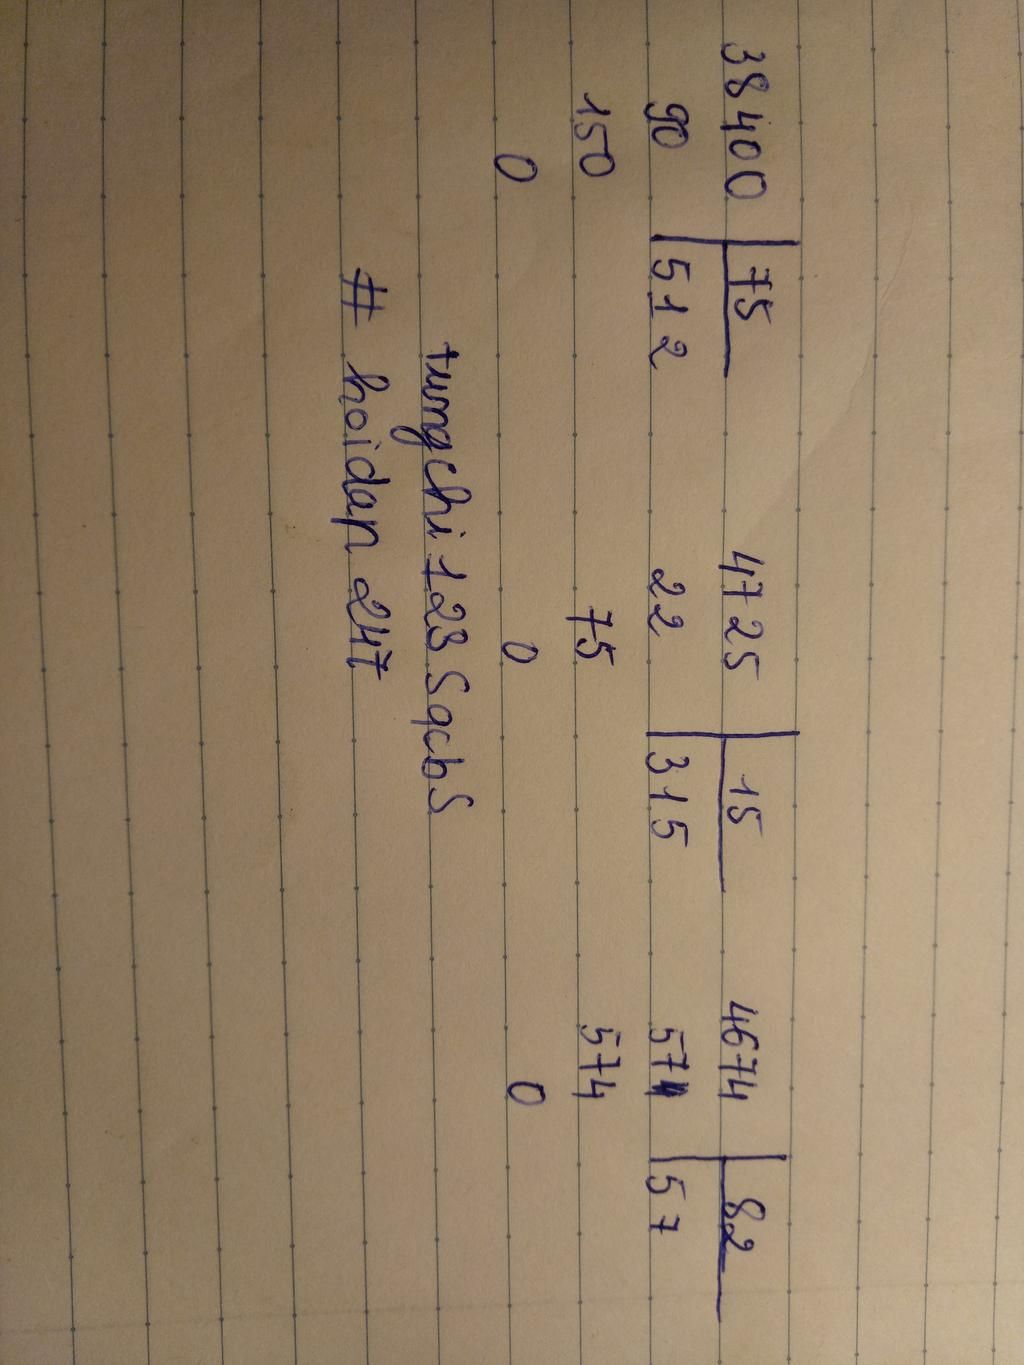 38400 75 4725 15 4674 82
90 512 22 315 574 57
150 75 574
0 0 0
# hoidap 247